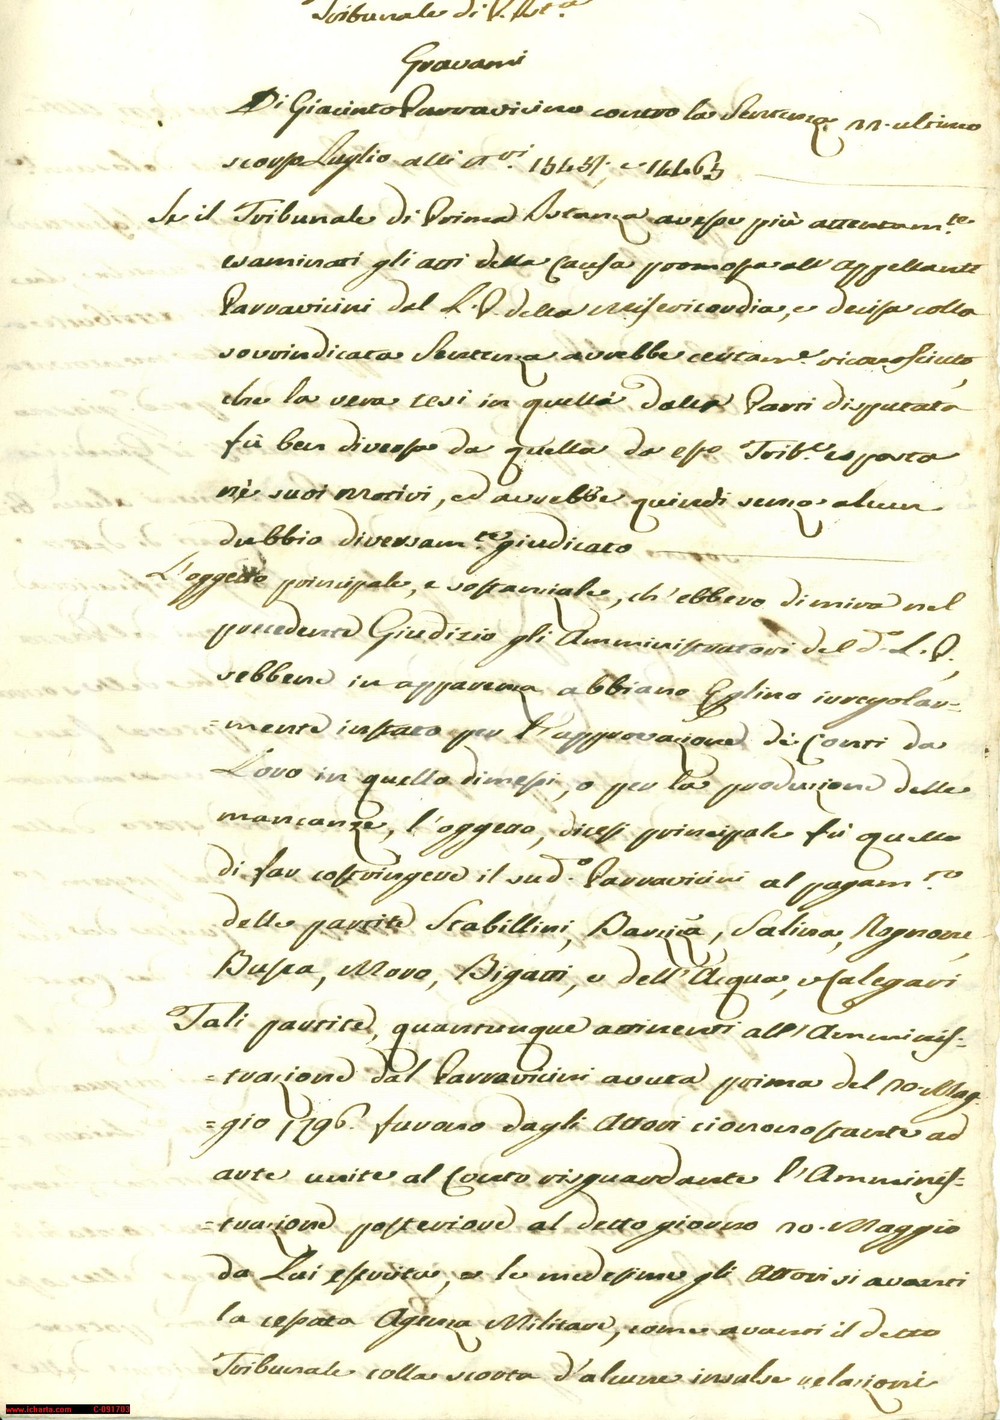 Tribunale di P. Ist.a
Gravami
Di Giacinto Parravicino contro la Sentenza 22. ultimo
scorso Luglio alli n.ri e 14463
Se il Tribunale di Prima Istanza avesse più attentam.te
esaminati gli atti della Causa promossa all' Appellante
Parravicini dal L. P. della Misericordia, e decisa colla
sovrindicata Sentenza avrebbe certam.e riconosciuto,
che la vera tesi in quella dalle Parti disputata
fù ben diversa da quella da esso Trib.e esposta
nè suoi Motivi, ed avrebbe quindi senza alcun
dubbio diversam.te giudicato
L'oggetto principale, e sostanziale, ch'ebbero di mira nel
precedente Giudizio gli Amministratori del d.o L. P.,
sebbene in apparenza abbiano Eglino irregolar=
=mente instato per l'approvazione dè Conti da
Loro in quello dimessi, o per la produzione delle
mancanze, l'oggetto, dicesi principale fù quello
di far costringere il sud.o Parravicini al pagam.to
delle partite Scabillini, Salina, Rognone,
Bussa, Moro, Bigatti, e dell'Acqua, e Calegari
Tali partite, quantunque attinenti all'Amminis=
=trazione dal Parravicini avuta prima del 20. Mag=
=gio 1796. furono dagli Attori ciononostante ad
arte unite al Conto risguardante l'Amminis=
=trazione posteriore al detto giorno 20. Maggio
da Lui esercita, e le medesime gli Attori sì avanti
la cessata Agenza Militare, come avanti il detto
Tribunale colla scorta d'alcune insulse relazioni
www.icharta.com C-091703